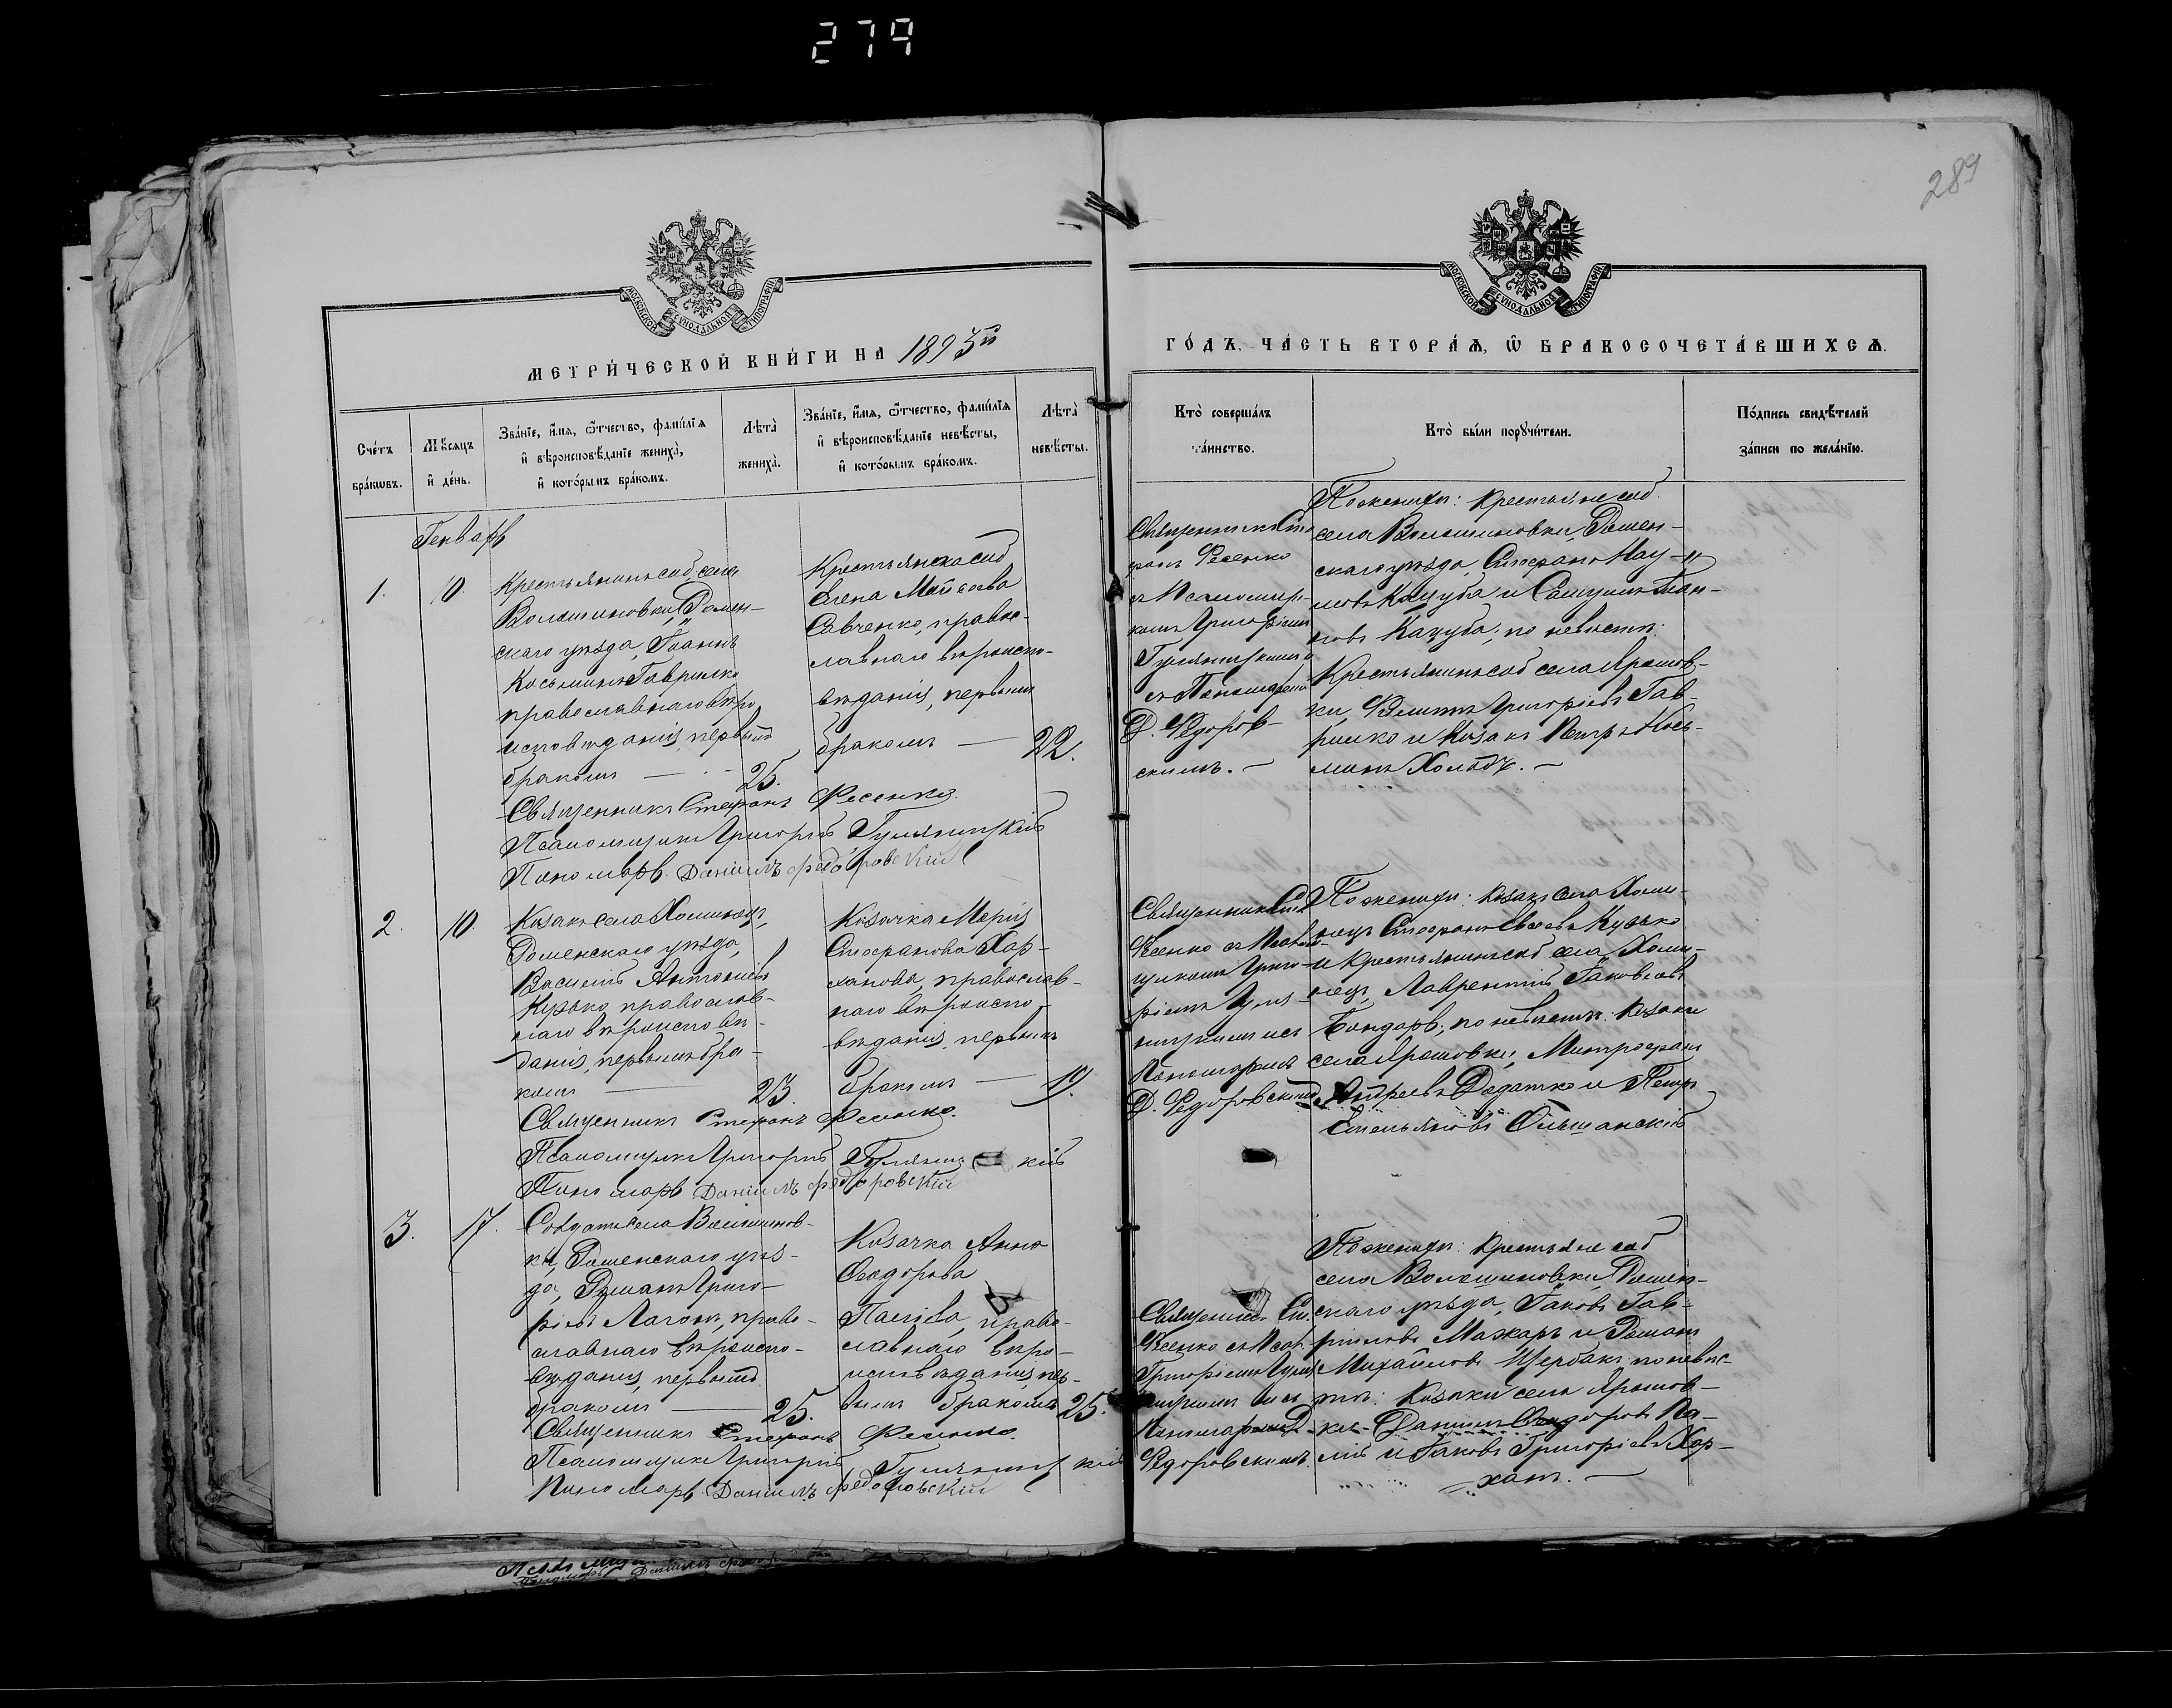 279
289
МОСКОВСКОЙ СѴНОДАЛЬНОЙ ТИПОГРАФІИ
МОСКОВСКОЙ СѴНОДАЛЬНОЙ ТИПОГРАФІИ
МЕТРИ́ЧЕСКОЙ КНИ́ГИ НА 1895й
ГО́ДЪ, ЧА́СТЬ ВТОРА́Ѧ, Ѽ БРАКОСОЧЕТА́ВШИХСѦ.
Сче́тъ
бра́кѡвъ.
Мѣ́сяцъ
и҆ де́нь.
Зва́нїе, и҆́мѧ, ѻ҆́тчество, фами́лїѧ
и҆ вѣроисповѣ́данїе жениха̀,
и҆ кото́рымъ бра́комъ.
Лѣта̀
жениха̀.
Зва́нїе, и҆́мѧ, ѻ҆́тчество, фами́лїѧ
и҆ вѣроисповѣ́данїе невѣ́сты,
и҆ кото́рымъ бра́комъ.
Лѣта̀
невѣ́сты.
Кто̀ соверша́лъ
та́инство.
Кто̀ бы́ли порꙋчи́тели.
По́дпись свидѣ́телей
за́писи по жела́нїю.
Генварь
1.
10.
Крестьянинъ соб. села
Волошиновки, Ромен-
скаго уѣзда, Іоаннъ
Косьминъ Гаврилко
православнаго вѣро
исповѣданія, первымъ
бракомъ — 25.
Крестьянска соб
Елена
Савченко, правос-
лавнаго вѣроиспо-
вѣданія, первымъ
бракомъ — 22.
Священникъ Сте
фанъ Фесенко
съ Псаломщи-
комъ Григоріемъ
Д. Ѳедоров-
скимъ. —
По женихѣ: Крестьяне соб.
села Волошиновки, Ромен-
скаго уѣзда, Стефанъ Нау-
мовъ Кацуба и
Кацуба; по невѣстѣ:
Крестьянинъ соб села Ярошов-
ки, Григоріевъ Гав-
рилко и Козакъ Петръ Кось-
минъ Холодъ. —
Священникъ Стефанъ Фесенко.
Псаломщикъ Григорій Гуляницкій
Пономарь Даніилъ Федоровскій
2.
10.
Козакъ села Хоминецъ,
Роменскаго уѣзда,
Василій Антоніевъ
Кузько, православ-
наго вѣроисповѣ-
данія, первымъ бра-
комъ — 23.
Козачка Марія
Стефанова Хар-
ханова, православ-
наго вѣроиспо-
вѣданія, первымъ
бракомъ — 19.
Священникъ Сте
Фесенко съ
Григо-
ріемъ Гуля-
ницкимъ и съ
Пономаремъ
Д. Ѳедоровскимъ
По женихѣ: Козакъ села Хоми-
нецъ Стефанъ Кузько
и Крестьянинъ соб села Хоми-
нецъ, Лаврентій Іаковлевъ
Бондарь; по невѣстѣ: Козаки
села Ярошовки, Митрофанъ
Андреевъ Додатко и Петръ
Емельяновъ Ольшанскій
Священникъ Стефанъ Фесенко.
Псаломщикъ Григорій Гуляниц кій
Пономарь Даніилъ Федоровскій
3.
17.
Солдатъ села Волошинов-
ки, Роменскаго уѣз-
да, Романъ Григо-
ріевъ, право-
славнаго вѣроиспо-
вѣданія, первымъ
бракомъ — 25.
Козачка Анна
Ѳеодорова
Палѣева, право-
славнаго вѣро-
исповѣданія, пер-
вымъ бракомъ 25.
Священникъ Ст.
Фесенко съ Псал.
Григоріемъ Гуля
ницкимъ и съ
Пономаремъ Д.
Ѳедоровскимъ.
По женихѣ: Крестьяне соб
села Волошиновки, Ромен-
скаго уѣзда, Іаковъ Гав-
риловъ Мажаръ и Романъ
Михайловъ Щербакъ; по невѣс-
тѣ: Козаки села Ярошов-
ки Даніилъ Ѳеодоровъ Па-
лій и Іаковъ Григоріевъ Хар-
ханъ. —
Священникъ Стефанъ Фесенко.
Псаломщикъ Григорій Гуляницкій
Пономарь Даніилъ Федоровскій